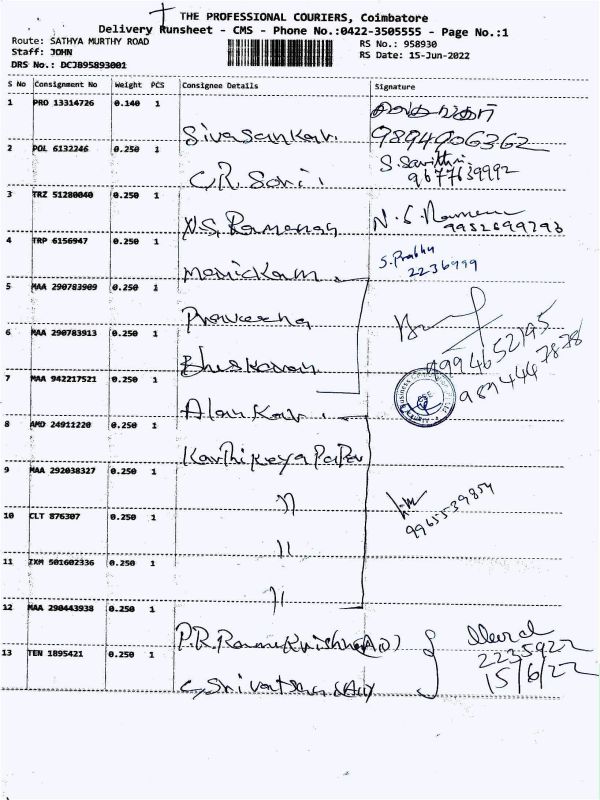 THE PROFESSIONAL COURIERS, Coimbatore
Delivery Runsheet - CMS - Phone No.:0422-3505555 - Page No.:1
Route: SATHYA MURTHY ROAD
RS No.: 958930
Staff: JOHN
RS Date: 15-Jun-2022
DRS No.: DCJ895893001
S No Consignment No Weight PCS Consignee Details Signature
1 PRO 13314726 0.140 1
Sivasankar. 9894906362
2 POL 6132246 0.250 1 S. Savithri
C.R. 9677639992
3 TRZ 51280040 0.250 1
N.S. Ramanan N. S. 9952699293
4 TRP 6156947 0.250 1 S. Prabhu
Manickam 2236999
5 MAA 290783909 0.250 1
Praveena
6 MAA 290783913 0.250 1 9994652195
Bhaskaran 9894447878
7 MAA 942217521 0.250 1
8 AMD 24911220 0.250 1
Karthikeya Paper
9 MAA 292038327 0.250 1
"
9965539854
10 CLT 876307 0.250 1
"
11 ZXM 501602336 0.250 1
"
12 MAA 290443938 0.250 1
P.R. Ramakrishna (AD)
2235922
13 TEN 1895421 0.250 1
15/6/22
C. Srivatsan